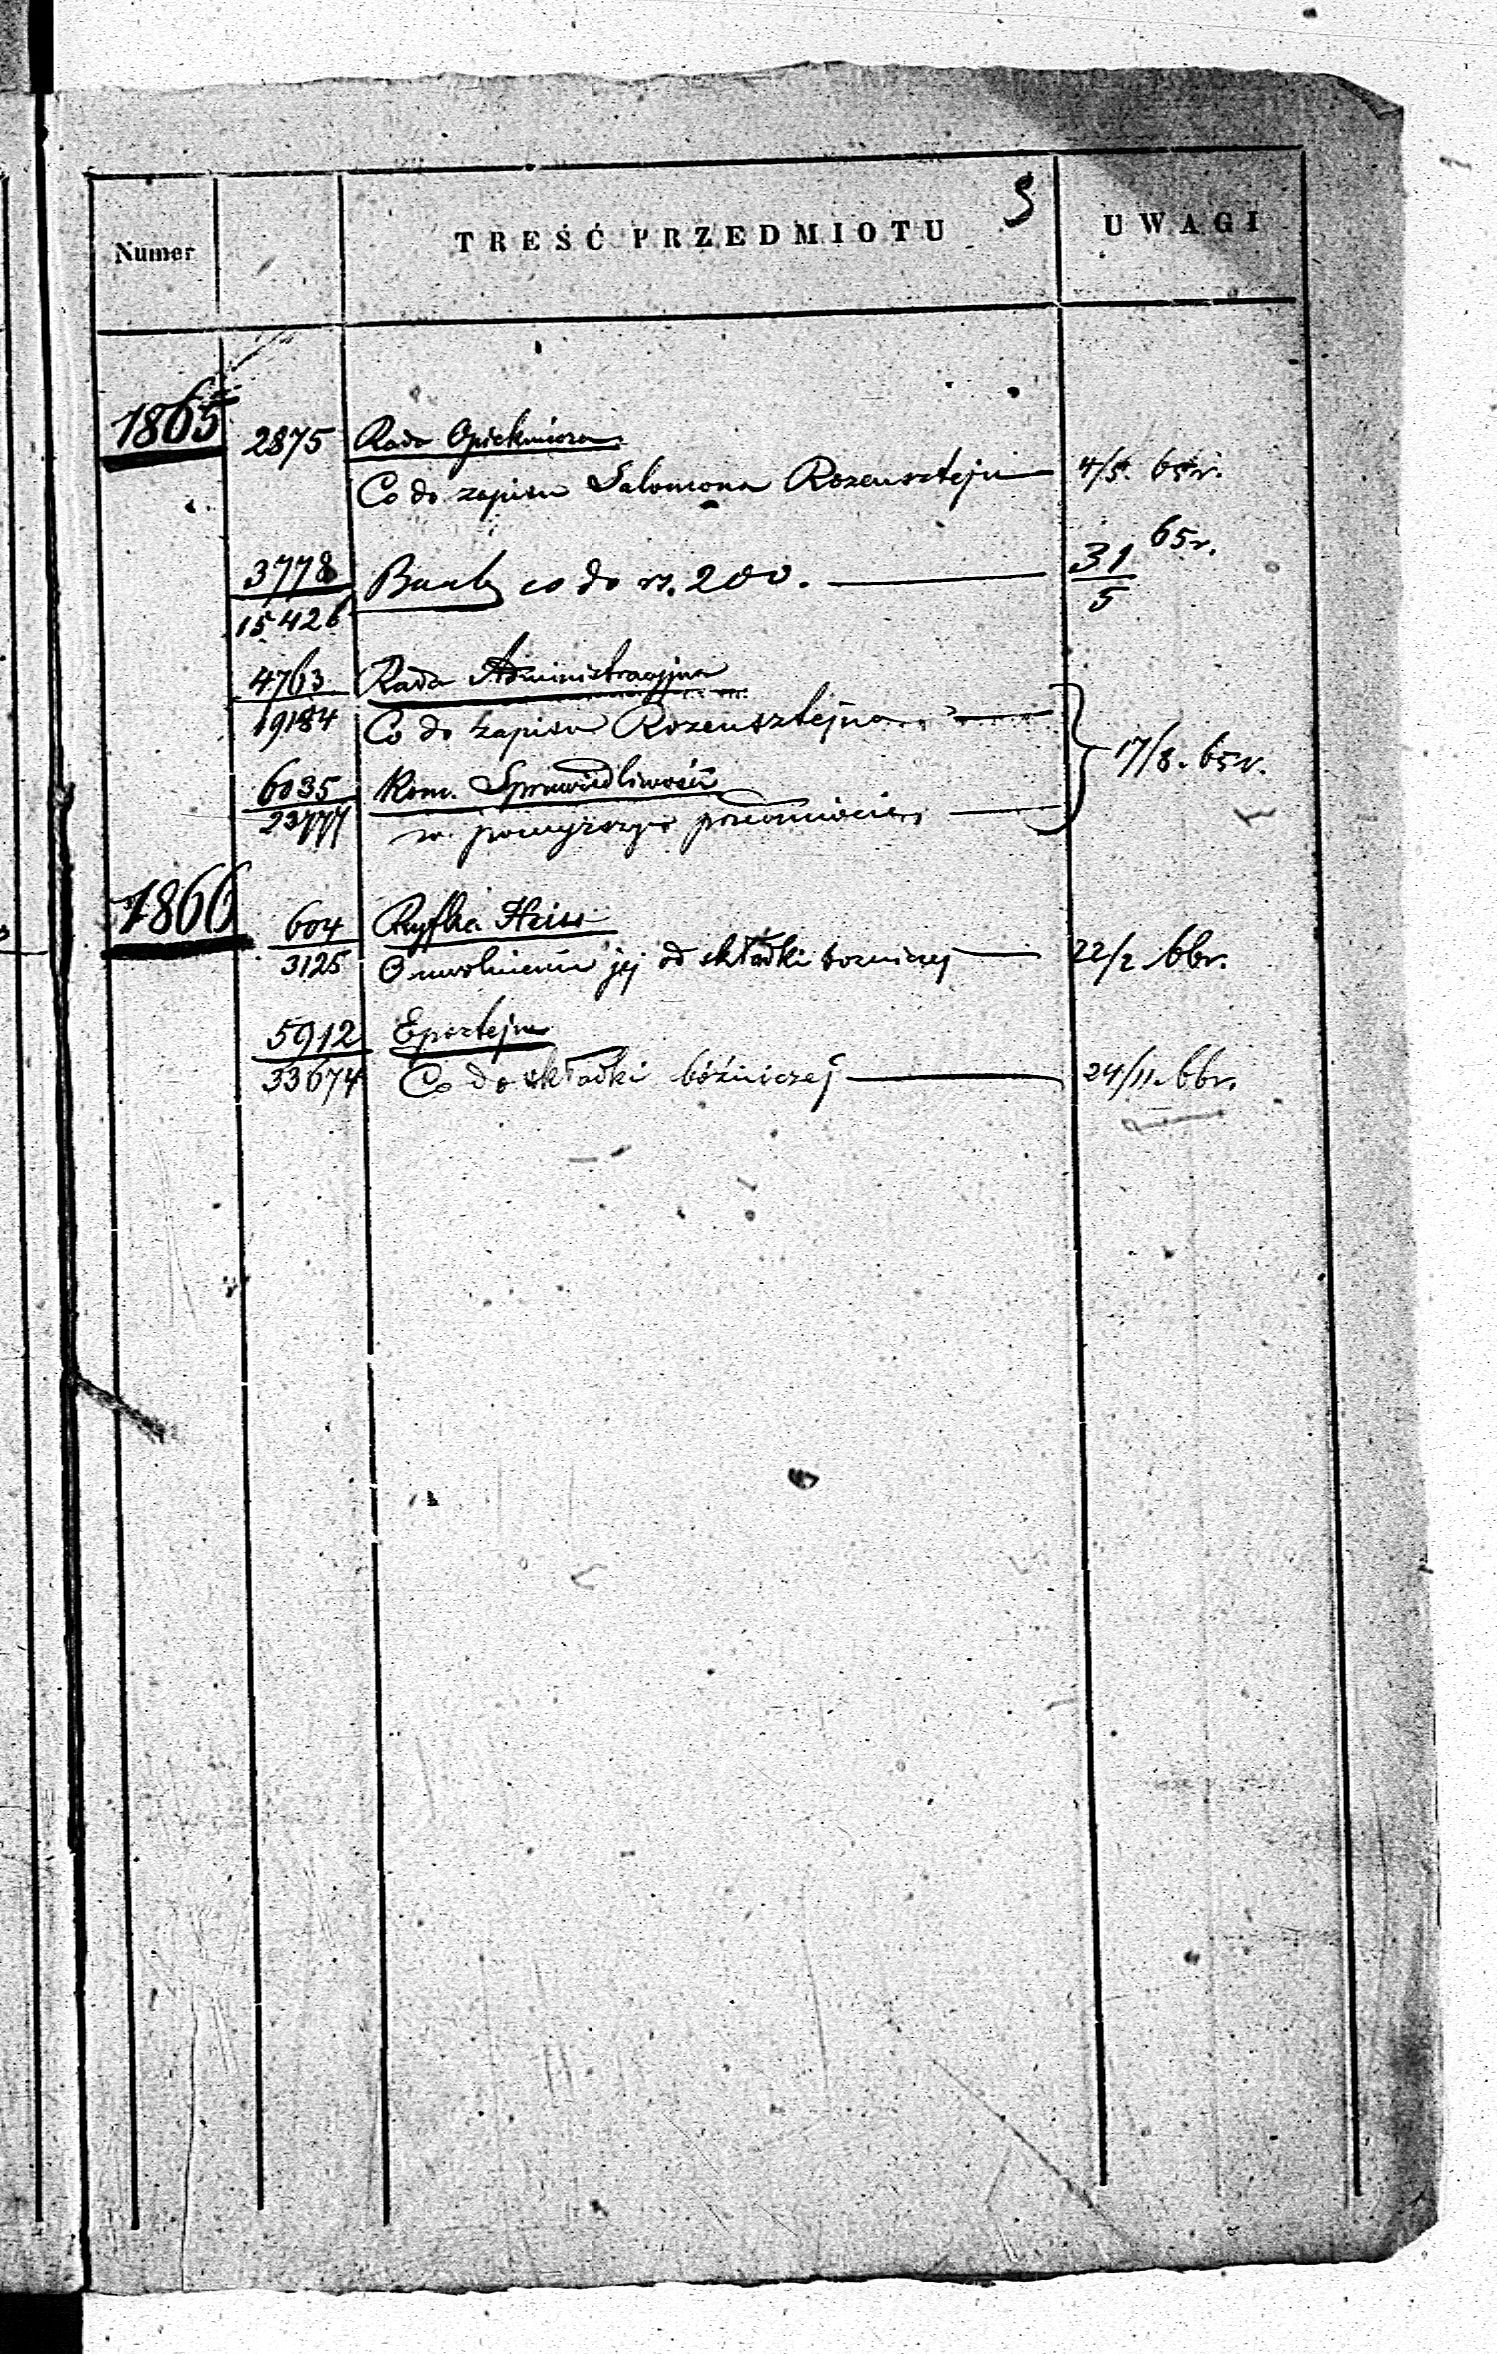 3
Numer TREŚĆ PRZEDMIOTU UWAGI
1865 2875 Rada Opiekuńcza
Co do zapisu Salomona Rozensztejn 4/5. 65r.
3778 Bank co do rs. 200. 31/5 65r.
15426
4763 Rada Administracyjna
19184 Co do zapisu Rozensztejna
17/8. 65r.
6035 Kom. Sprawiedliwości
23777 w powyższym przedmiocie
1866 604 Ryfka Heiss
3125 O uwolnienie jej od składki bożniczej 22/2 66r.
5912 Epsztejn
33674 Co do składki bóżniczej 24/11. 66r.